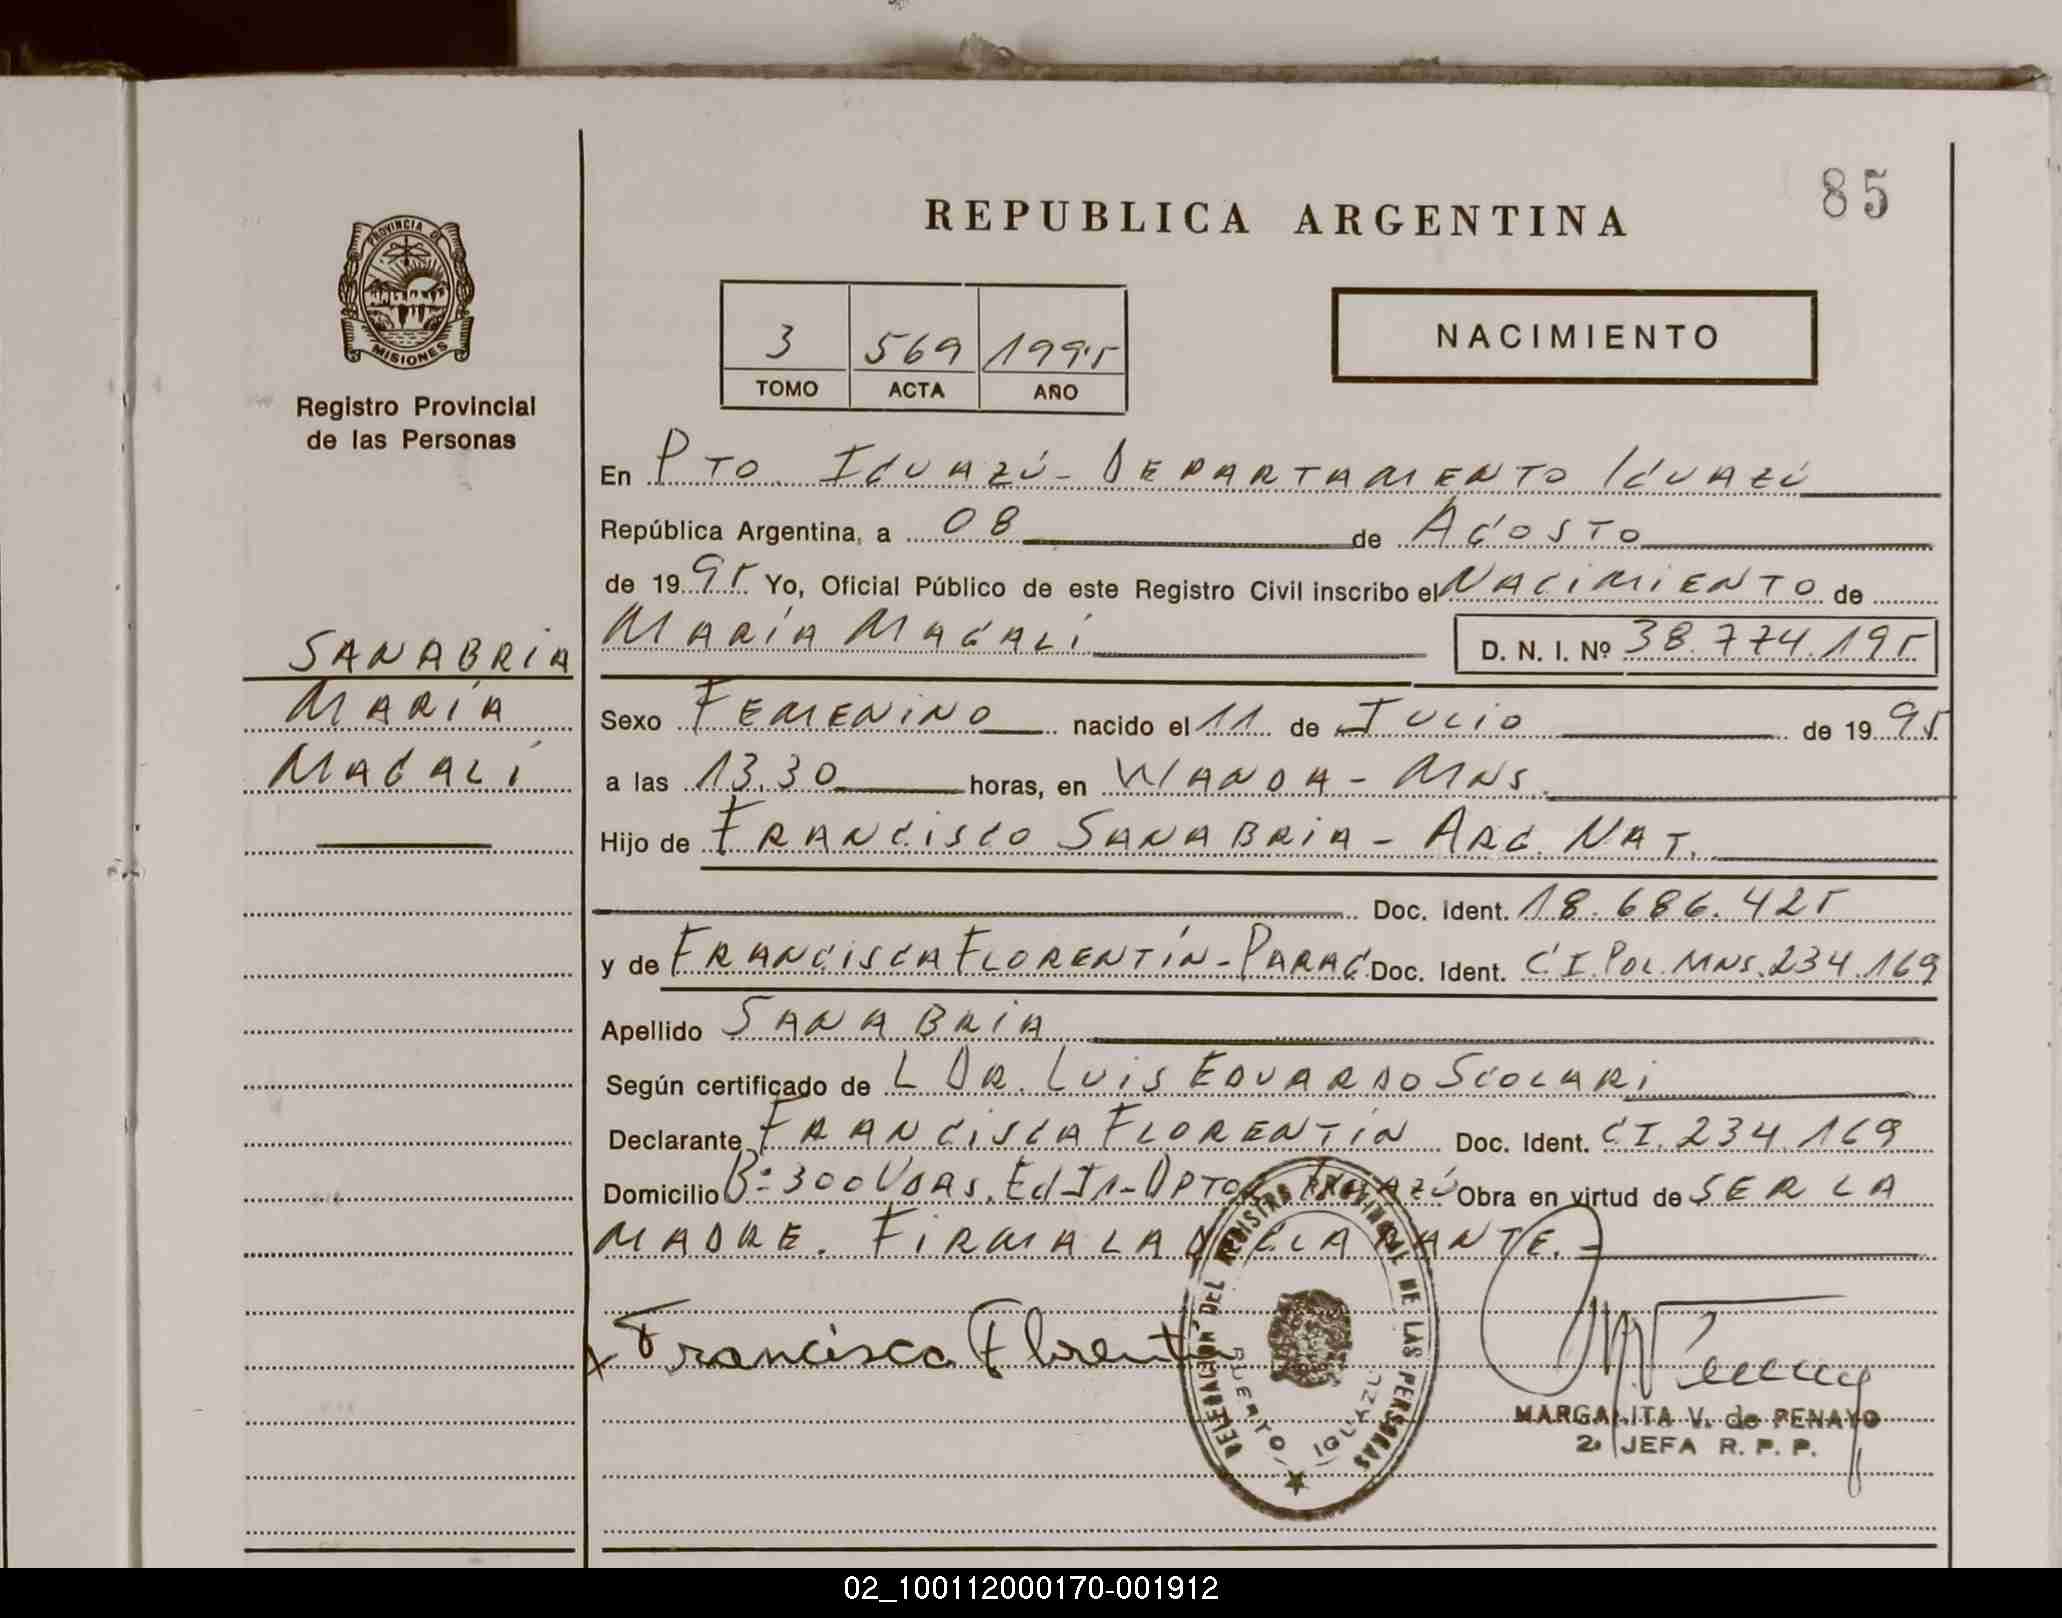 85
REPUBLICA ARGENTINA
PROVINCIA DE
MISIONES
Registro Provincial
de las Personas
3 569 1995
TOMO ACTA AÑO
NACIMIENTO
En PTO. IGUAZÚ - DEPARTAMENTO IGUAZÚ
República Argentina, a 08 de AGOSTO
de 1995 Yo, Oficial Público de este Registro Civil inscribo el NACIMIENTO de
MARÍA MAGALÍ D. N. I. Nº 38.774.195
SANABRIA
MARÍA
MAGALÍ
Sexo FEMENINO nacido el 11 de JULIO de 1995
a las 13.30 horas, en WANDA - MNS.
Hijo de FRANCISCO SANABRIA - ARG. NAT.
Doc. Ident. 18.686.425
y de FRANCISCA FLORENTÍN - PARAG Doc. Ident. C.I. POL. MNS. 234.169
Apellido SANABRIA
Según certificado de L DR. LUIS EDUARDO SCOLARI
Declarante FRANCISCA FLORENTÍN Doc. Ident. C.I. 234.169
Domicilio Bº 300 VDAS. Ed IGUAZÚ Obra en virtud de SER LA
MADRE. FIRMA LA DECLARANTE. -
x Francisca Florentin
DELEGACION DEL REGISTRO PROVINCIAL DE LAS PERSONAS
PUERTO IGUAZU
MARGARITA V. de PENAYO
2ª JEFA R. P. P.
02_100112000170-001912